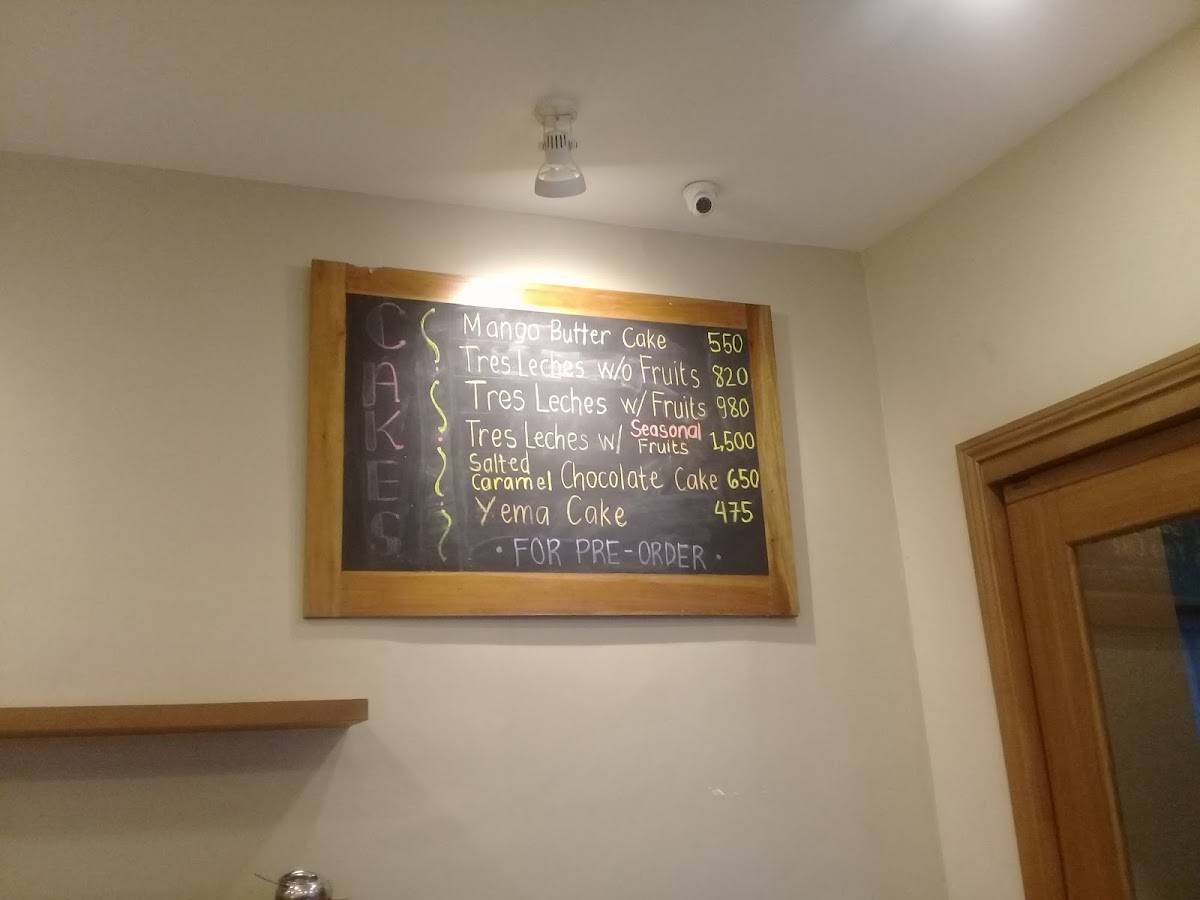 CAKES
Mango Butter Cake 550
Tres Leches w/o Fruits 820
Tres Leches w/ Fruits 980
Tres Leches w/ Seasonal Fruits 1,500
Salted Caramel Chocolate Cake 650
Yema Cake 475
• FOR PRE-ORDER •